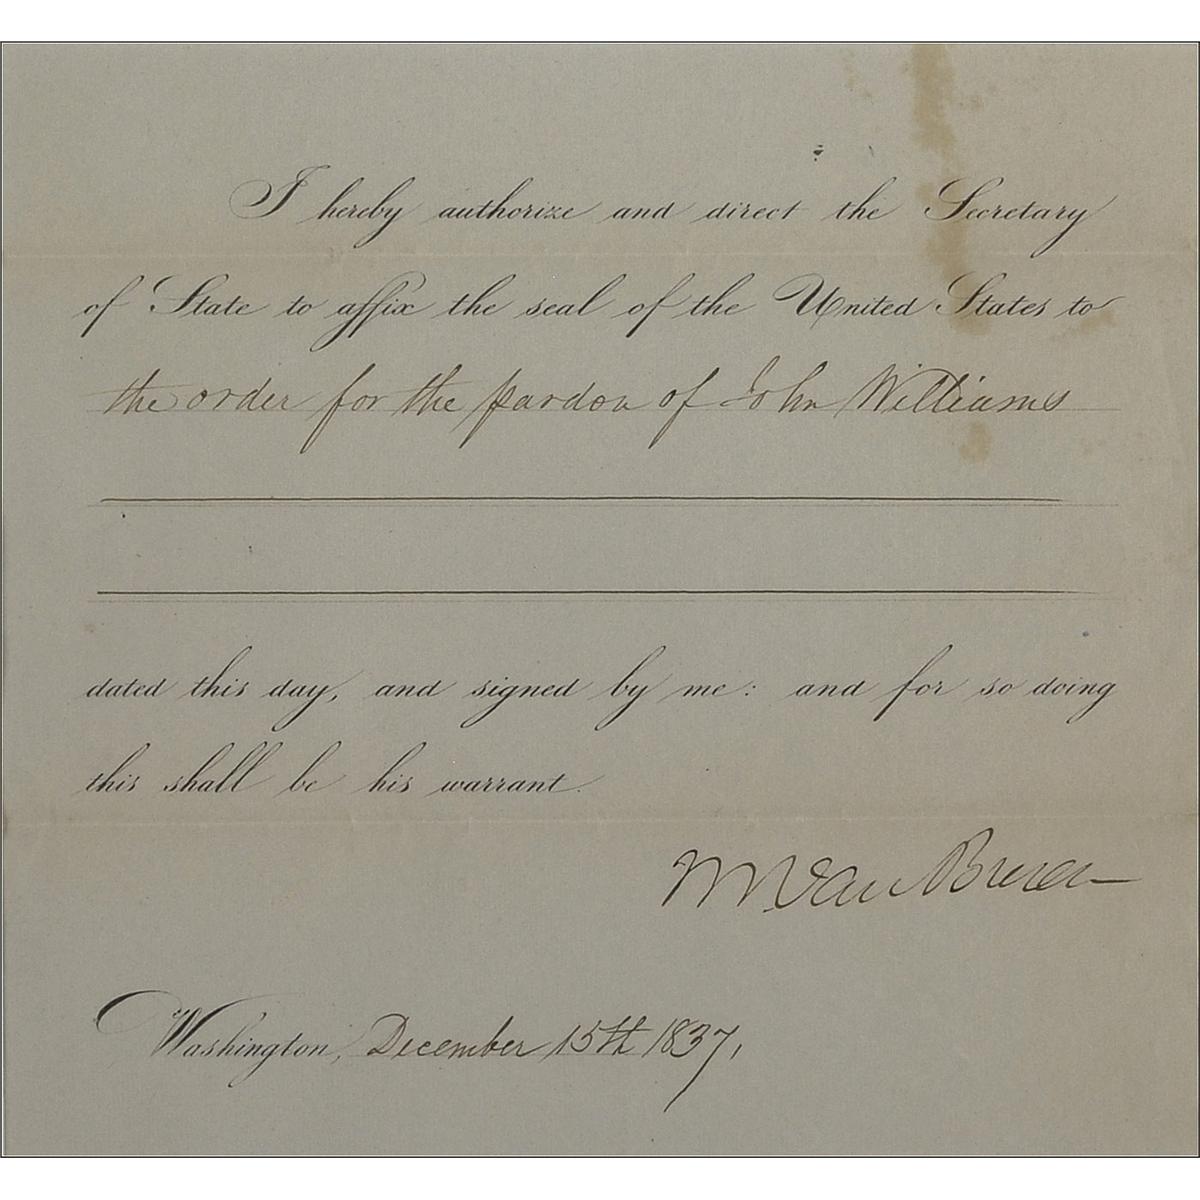 I hereby authorize and direct the Secretary
of State to affix the seal of the United States to
the order for the pardon of John Williams
dated this day, and signed by me: and for so doing
this shall be his warrant.
M Van Buren
Washington, December 15th 1837,